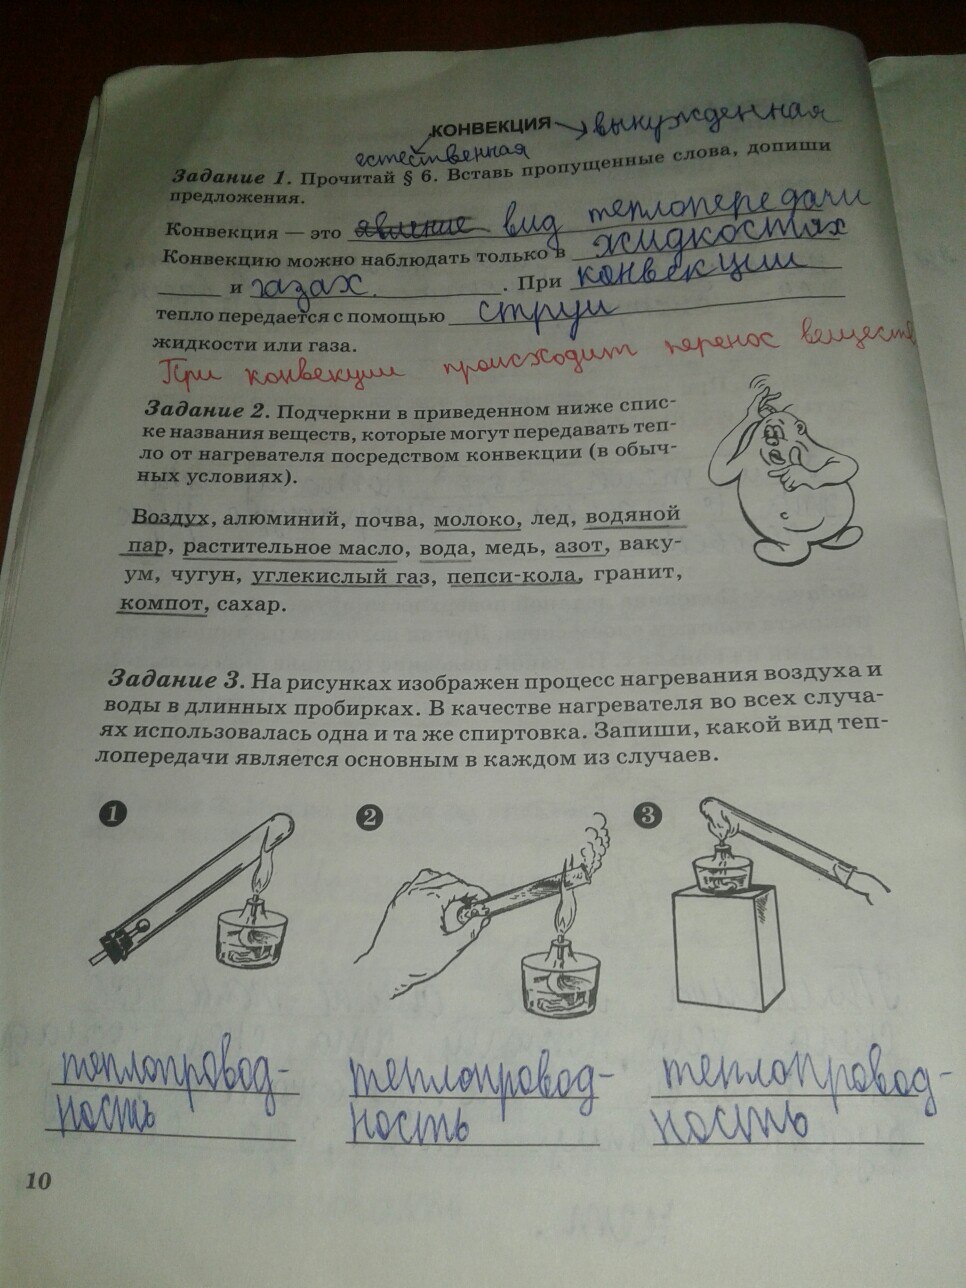 КОНВЕКЦИЯ → вынужденная
естественная
Задание 1. Прочитай § 6. Вставь пропущенные слова, допиши
предложения.
Конвекция — это явление вид теплопередачи
Конвекцию можно наблюдать только в жидкостях
и газах. При конвекции
тепло передается с помощью струи
жидкости или газа.
При конвекции происходит перенос веществ
Задание 2. Подчеркни в приведенном ниже спис-
ке названия веществ, которые могут передавать теп-
ло от нагревателя посредством конвекции (в обыч-
ных условиях).
Воздух, алюминий, почва, молоко, лед, водяной
пар, растительное масло, вода, медь, азот, ваку-
ум, чугун, углекислый газ, пепси-кола, гранит,
компот, сахар.
Задание 3. На рисунках изображен процесс нагревания воздуха и
воды в длинных пробирках. В качестве нагревателя во всех случа-
ях использовалась одна и та же спиртовка. Запиши, какой вид теп-
лопередачи является основным в каждом из случаев.
1 2 3
теплопровод- теплопровод- теплопровод-
ность ность ность
10